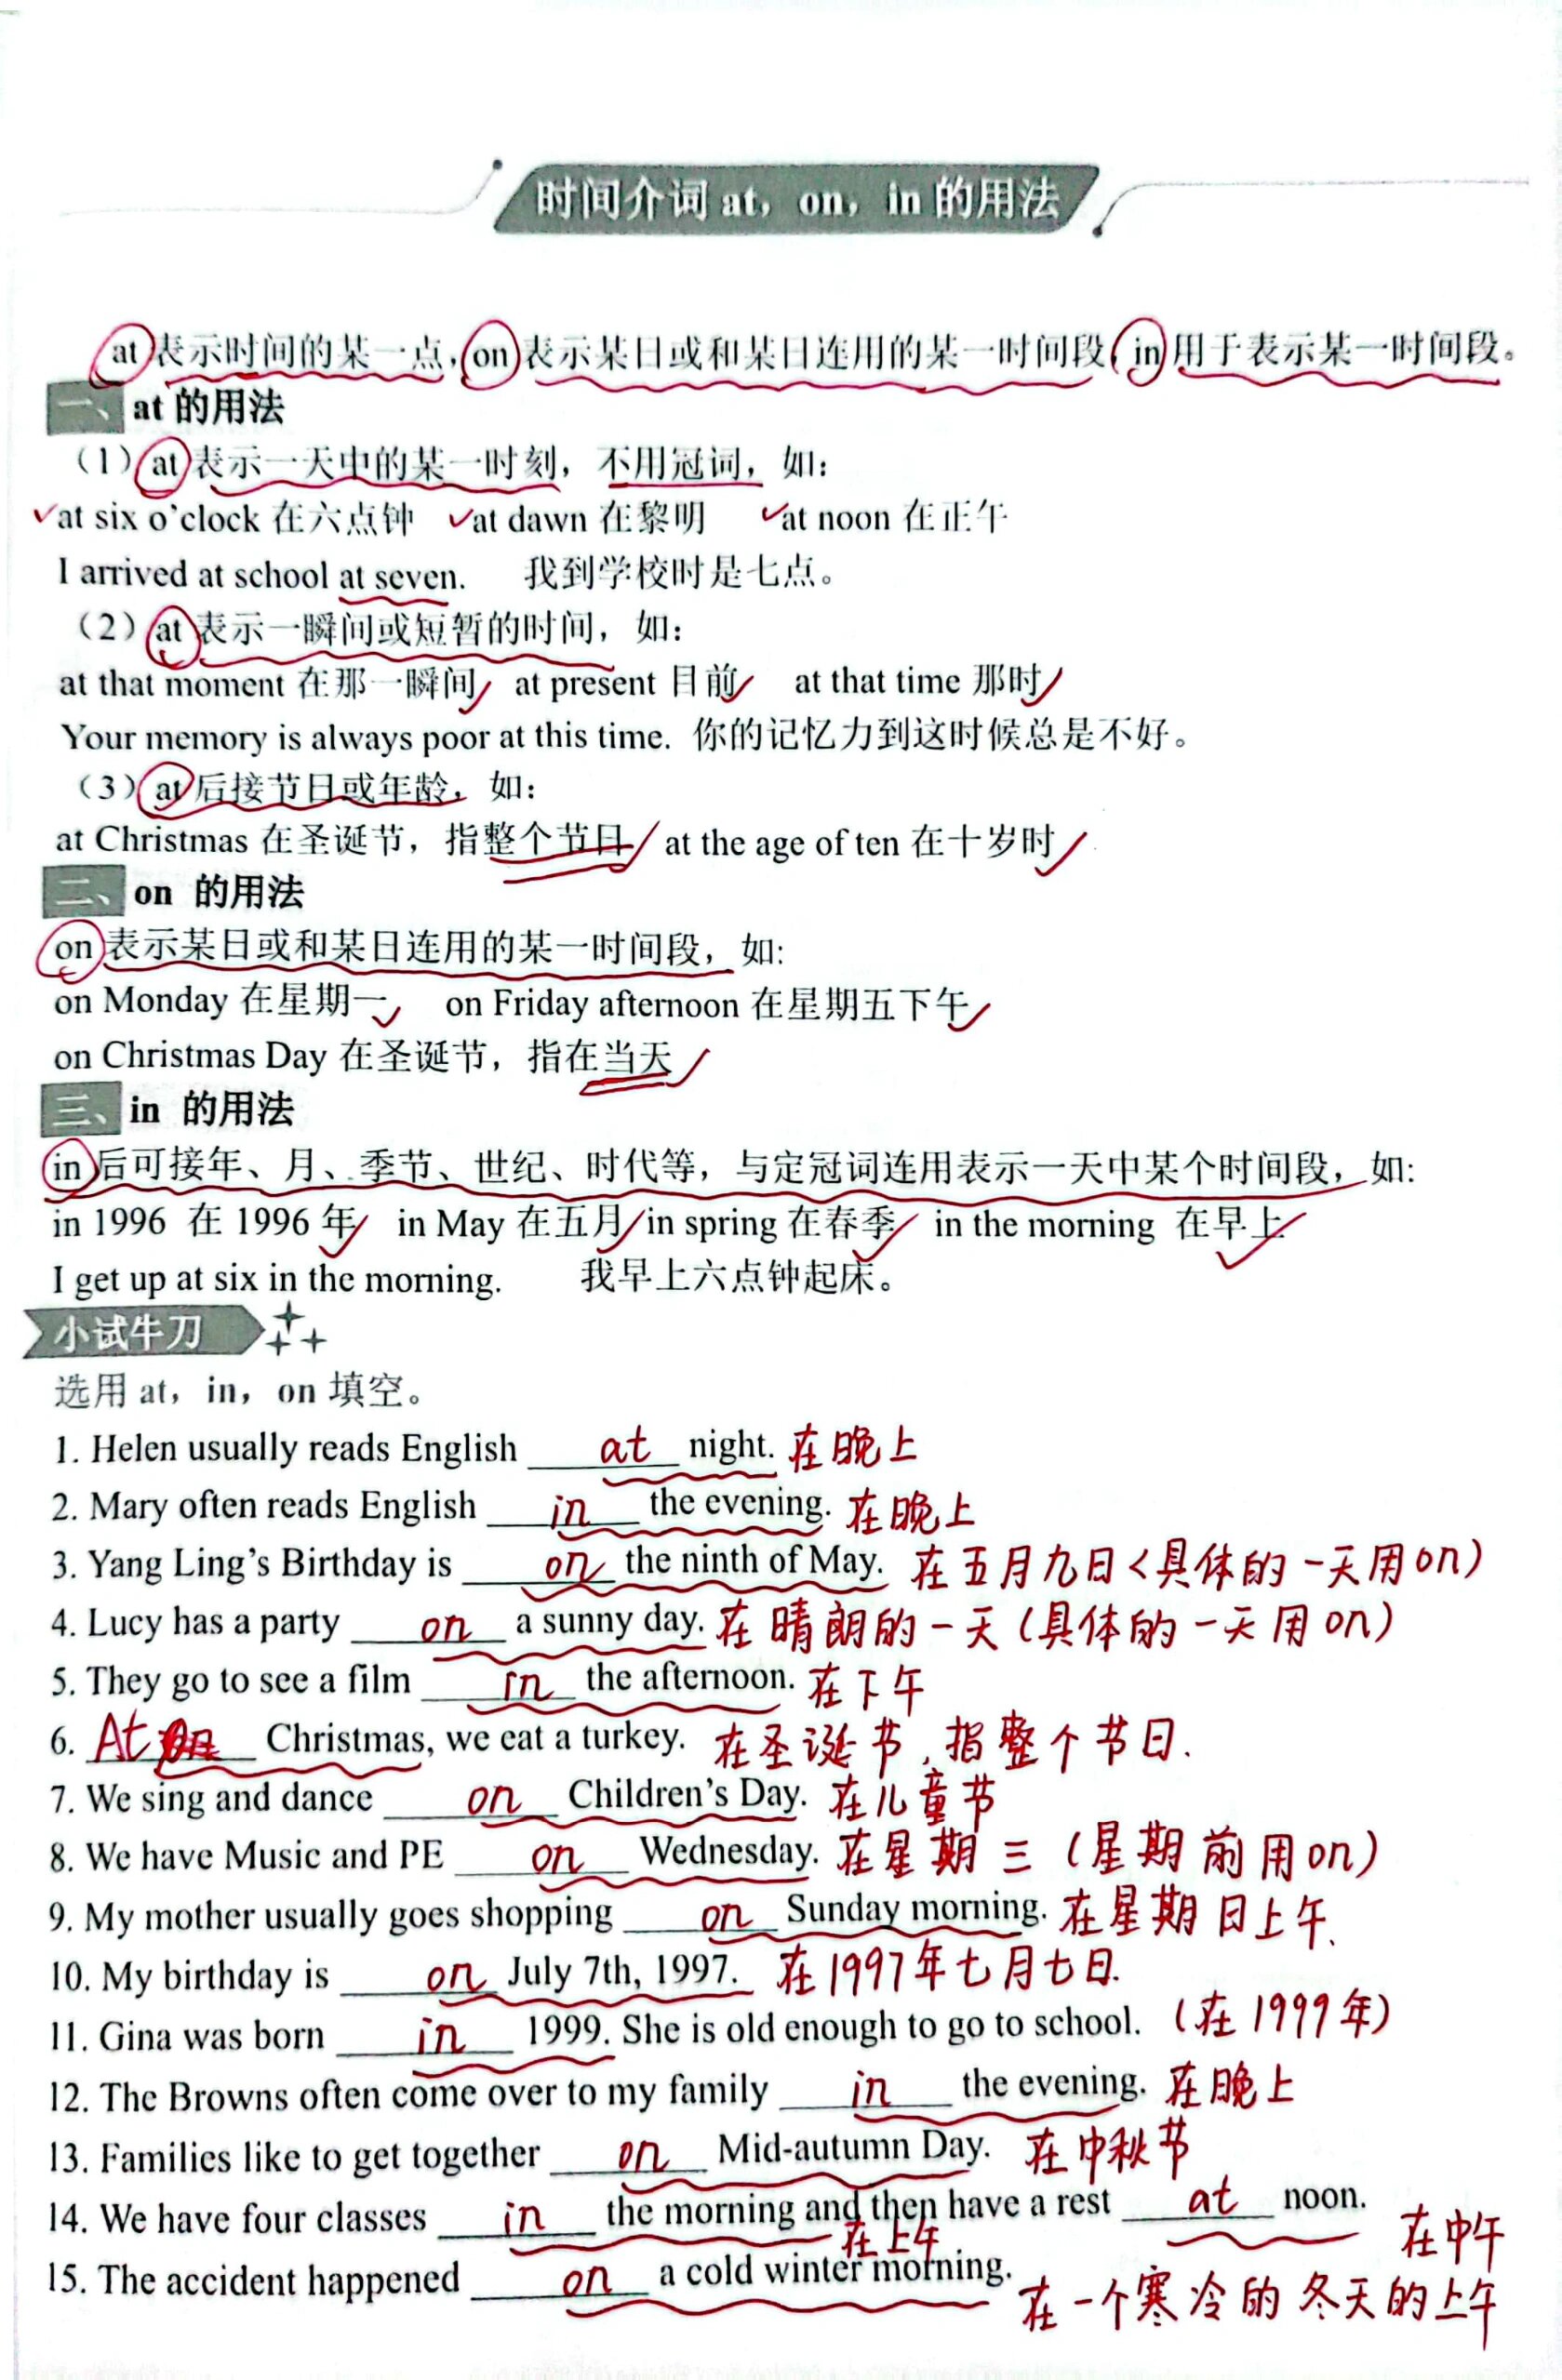 时间介词 at，on，in 的用法
at 表示时间的某一点，on 表示某日或和某日连用的某一时间段，in 用于表示某一时间段。
一、at 的用法
（1）at 表示一天中的某一时刻，不用冠词，如：
at six o'clock 在六点钟 at dawn 在黎明 at noon 在正午
I arrived at school at seven. 我到学校时是七点。
（2）at 表示一瞬间或短暂的时间，如：
at that moment 在那一瞬间 at present 目前 at that time 那时
Your memory is always poor at this time. 你的记忆力到这时候总是不好。
（3）at 后接节日或年龄，如：
at Christmas 在圣诞节，指整个节日 at the age of ten 在十岁时
二、on 的用法
on 表示某日或和某日连用的某一时间段，如:
on Monday 在星期一 on Friday afternoon 在星期五下午
on Christmas Day 在圣诞节，指在当天
三、in 的用法
in 后可接年、月、季节、世纪、时代等，与定冠词连用表示一天中某个时间段，如:
in 1996 在 1996 年 in May 在五月 in spring 在春季 in the morning 在早上
I get up at six in the morning. 我早上六点钟起床。
小试牛刀
选用 at，in，on 填空。
1. Helen usually reads English at night. 在晚上
2. Mary often reads English in the evening. 在晚上
3. Yang Ling's Birthday is on the ninth of May. 在五月九日<具体的一天用on)
4. Lucy has a party on a sunny day. 在晴朗的一天(具体的一天用on)
5. They go to see a film in the afternoon. 在下午
6. At Christmas, we eat a turkey. 在圣诞节,指整个节日.
7. We sing and dance on Children's Day. 在儿童节
8. We have Music and PE on Wednesday. 在星期三(星期前用on)
9. My mother usually goes shopping on Sunday morning. 在星期日上午.
10. My birthday is on July 7th, 1997. 在1997年七月七日.
11. Gina was born in 1999. She is old enough to go to school. (在1999年)
12. The Browns often come over to my family in the evening. 在晚上
13. Families like to get together on Mid-autumn Day. 在中秋节
14. We have four classes in the morning and then have a rest at noon.
在上午 在中午
15. The accident happened on a cold winter morning. 在一个寒冷的冬天的上午